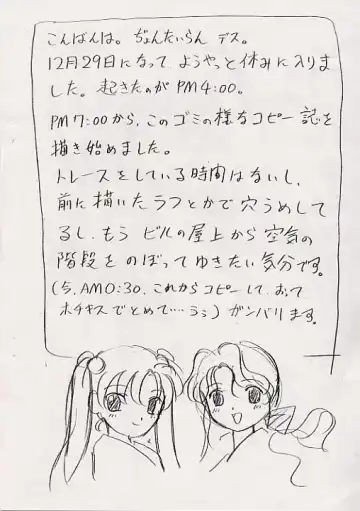 こんばんは。ぢょんたいらん デス。
12月29日になって ようやっと休みに入りま
した。起きたのが PM4:00。
PM7:00から、このゴミの様なコピー誌を
描き始めました。
トレースをしている時間はないし、
前に描いたラフとかで穴うめして
るし、もう ビルの屋上から空気の
階段をのぼってゆきたい気分です。
(今、AM0:30、これからコピーして、おって
ホチキスでとめて・・・・うぅ) ガンバります。